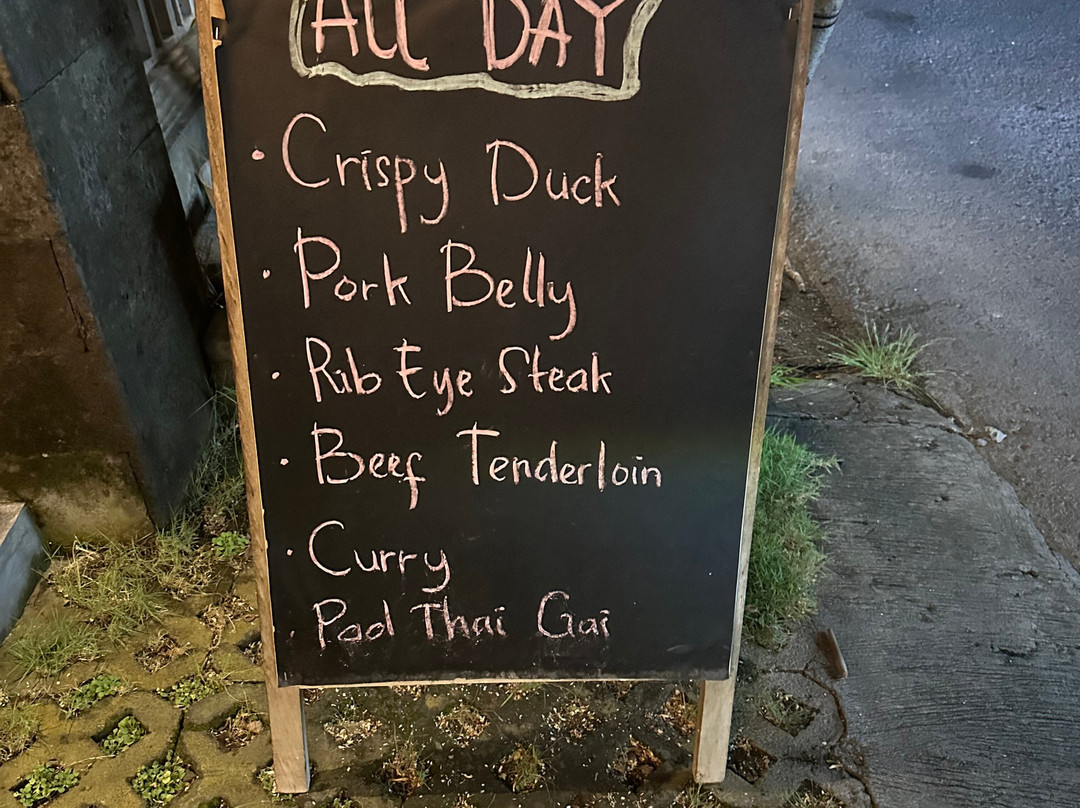 ALL DAY
• Crispy Duck
• Pork Belly
• Rib Eye Steak
• Beef Tenderloin
• Curry
• Pad Thai Gai